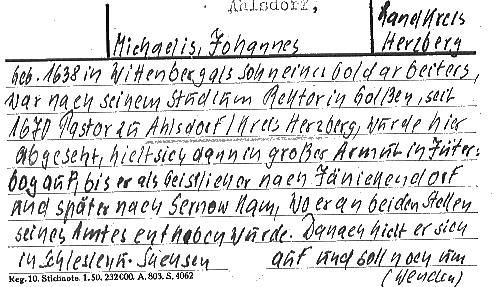 Ahlsdorf,
Landkreis
Herzberg
Michaelis, Johannes
geb. 1638 in Wittenberg als Sohn eines Goldarbeiters,
war nach seinem Studium Rektor in Golßen, seit
1670 Pastor zu Ahlsdorf/Kreis Herzberg, wurde hier
abgesetzt, hielt sich dann in großer Armut in Jüter-
bog auf, bis er als Geistlicher nach Jänickendorf
und später nach Sernow kam, wo er an beiden Stellen
seines Amtes enthoben wurde. Danach hielt er sich
in Schlesien u. Sachsen auf und soll noch um
(wenden)
Reg. 10. Stichnote. 1. 50. 232000. A. 803. S. 4062